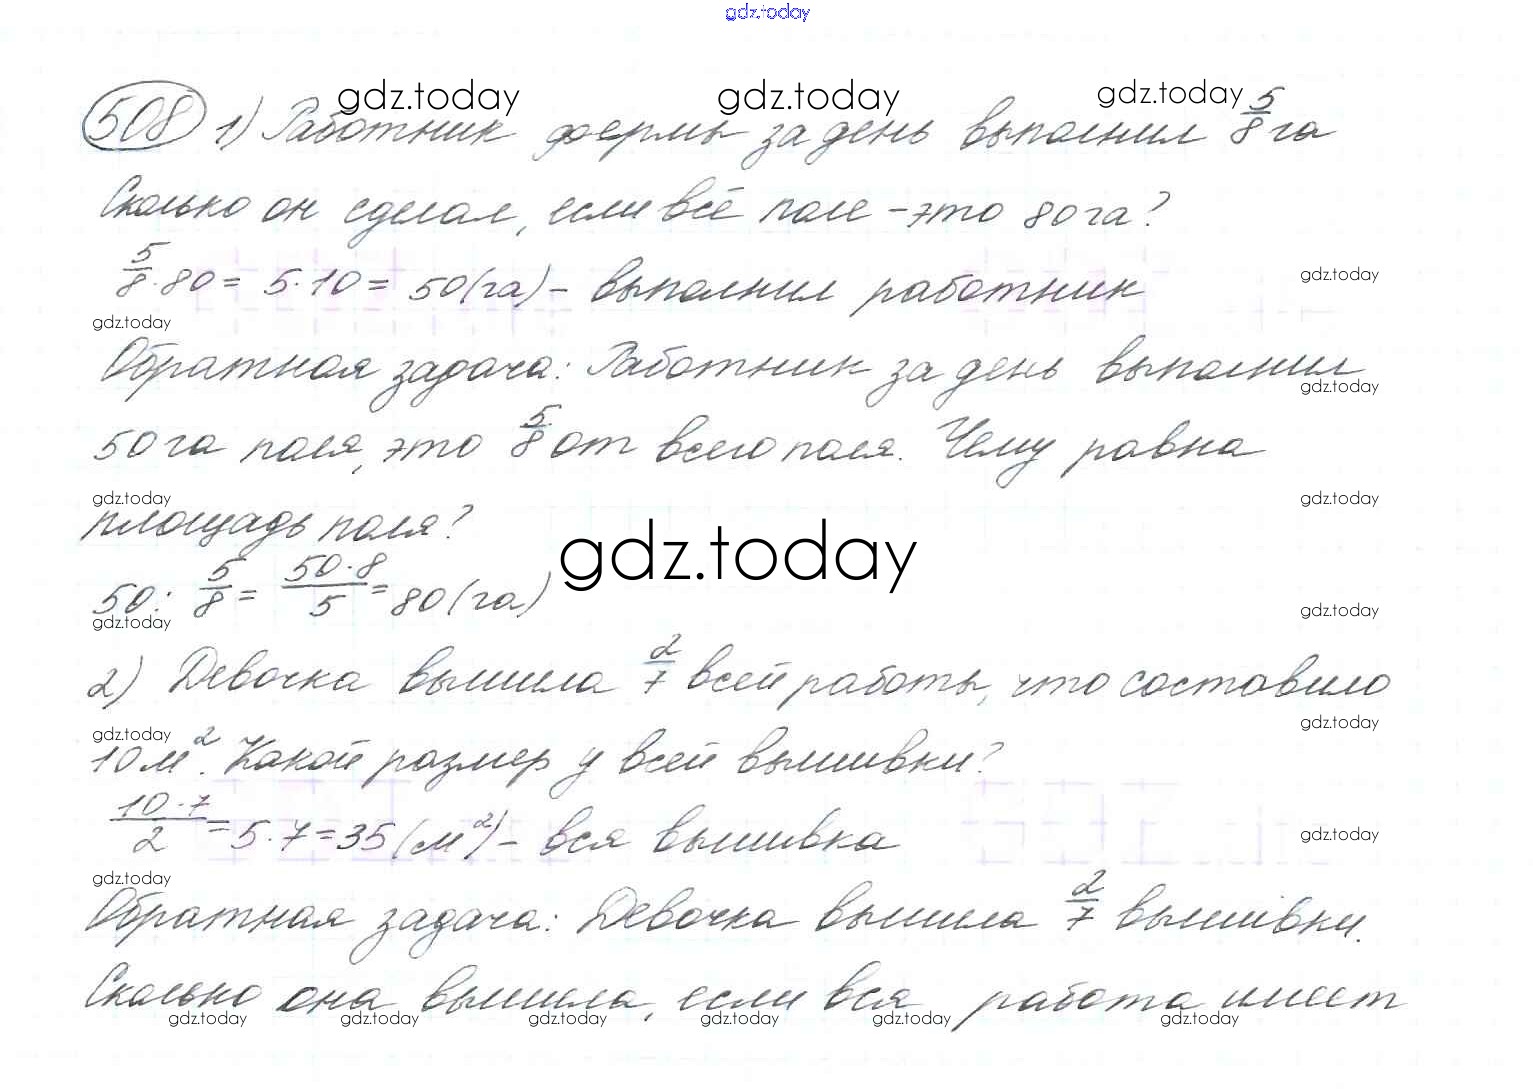 gdz.today
gdz.today gdz.today gdz.today
508 1) Работник фермы за день выполнил 5/8 га
Сколько он сделал, если всё поле - это 80 га?
5/8 · 80 = 5 · 10 = 50 (га) - выполнил работник
gdz.today
gdz.today
Обратная задача: Работник за день выполнил
gdz.today
50 га поля, это 5/8 от всего поля. Чему равна
gdz.today gdz.today
площадь поля?
gdz.today
50 : 5/8 = 50 · 8/5 = 80 (га)
gdz.today gdz.today
2) Девочка вышила 2/7 всей работы, что составило
gdz.today gdz.today
10 м². Какой размер у всей вышивки?
10 · 7/2 = 5 · 7 = 35 (м²) - вся вышивка
gdz.today
gdz.today
Обратная задача: Девочка вышила 2/7 вышивки.
Сколько она вышила, если вся работа имеет
gdz.today gdz.today gdz.today gdz.today gdz.today gdz.today